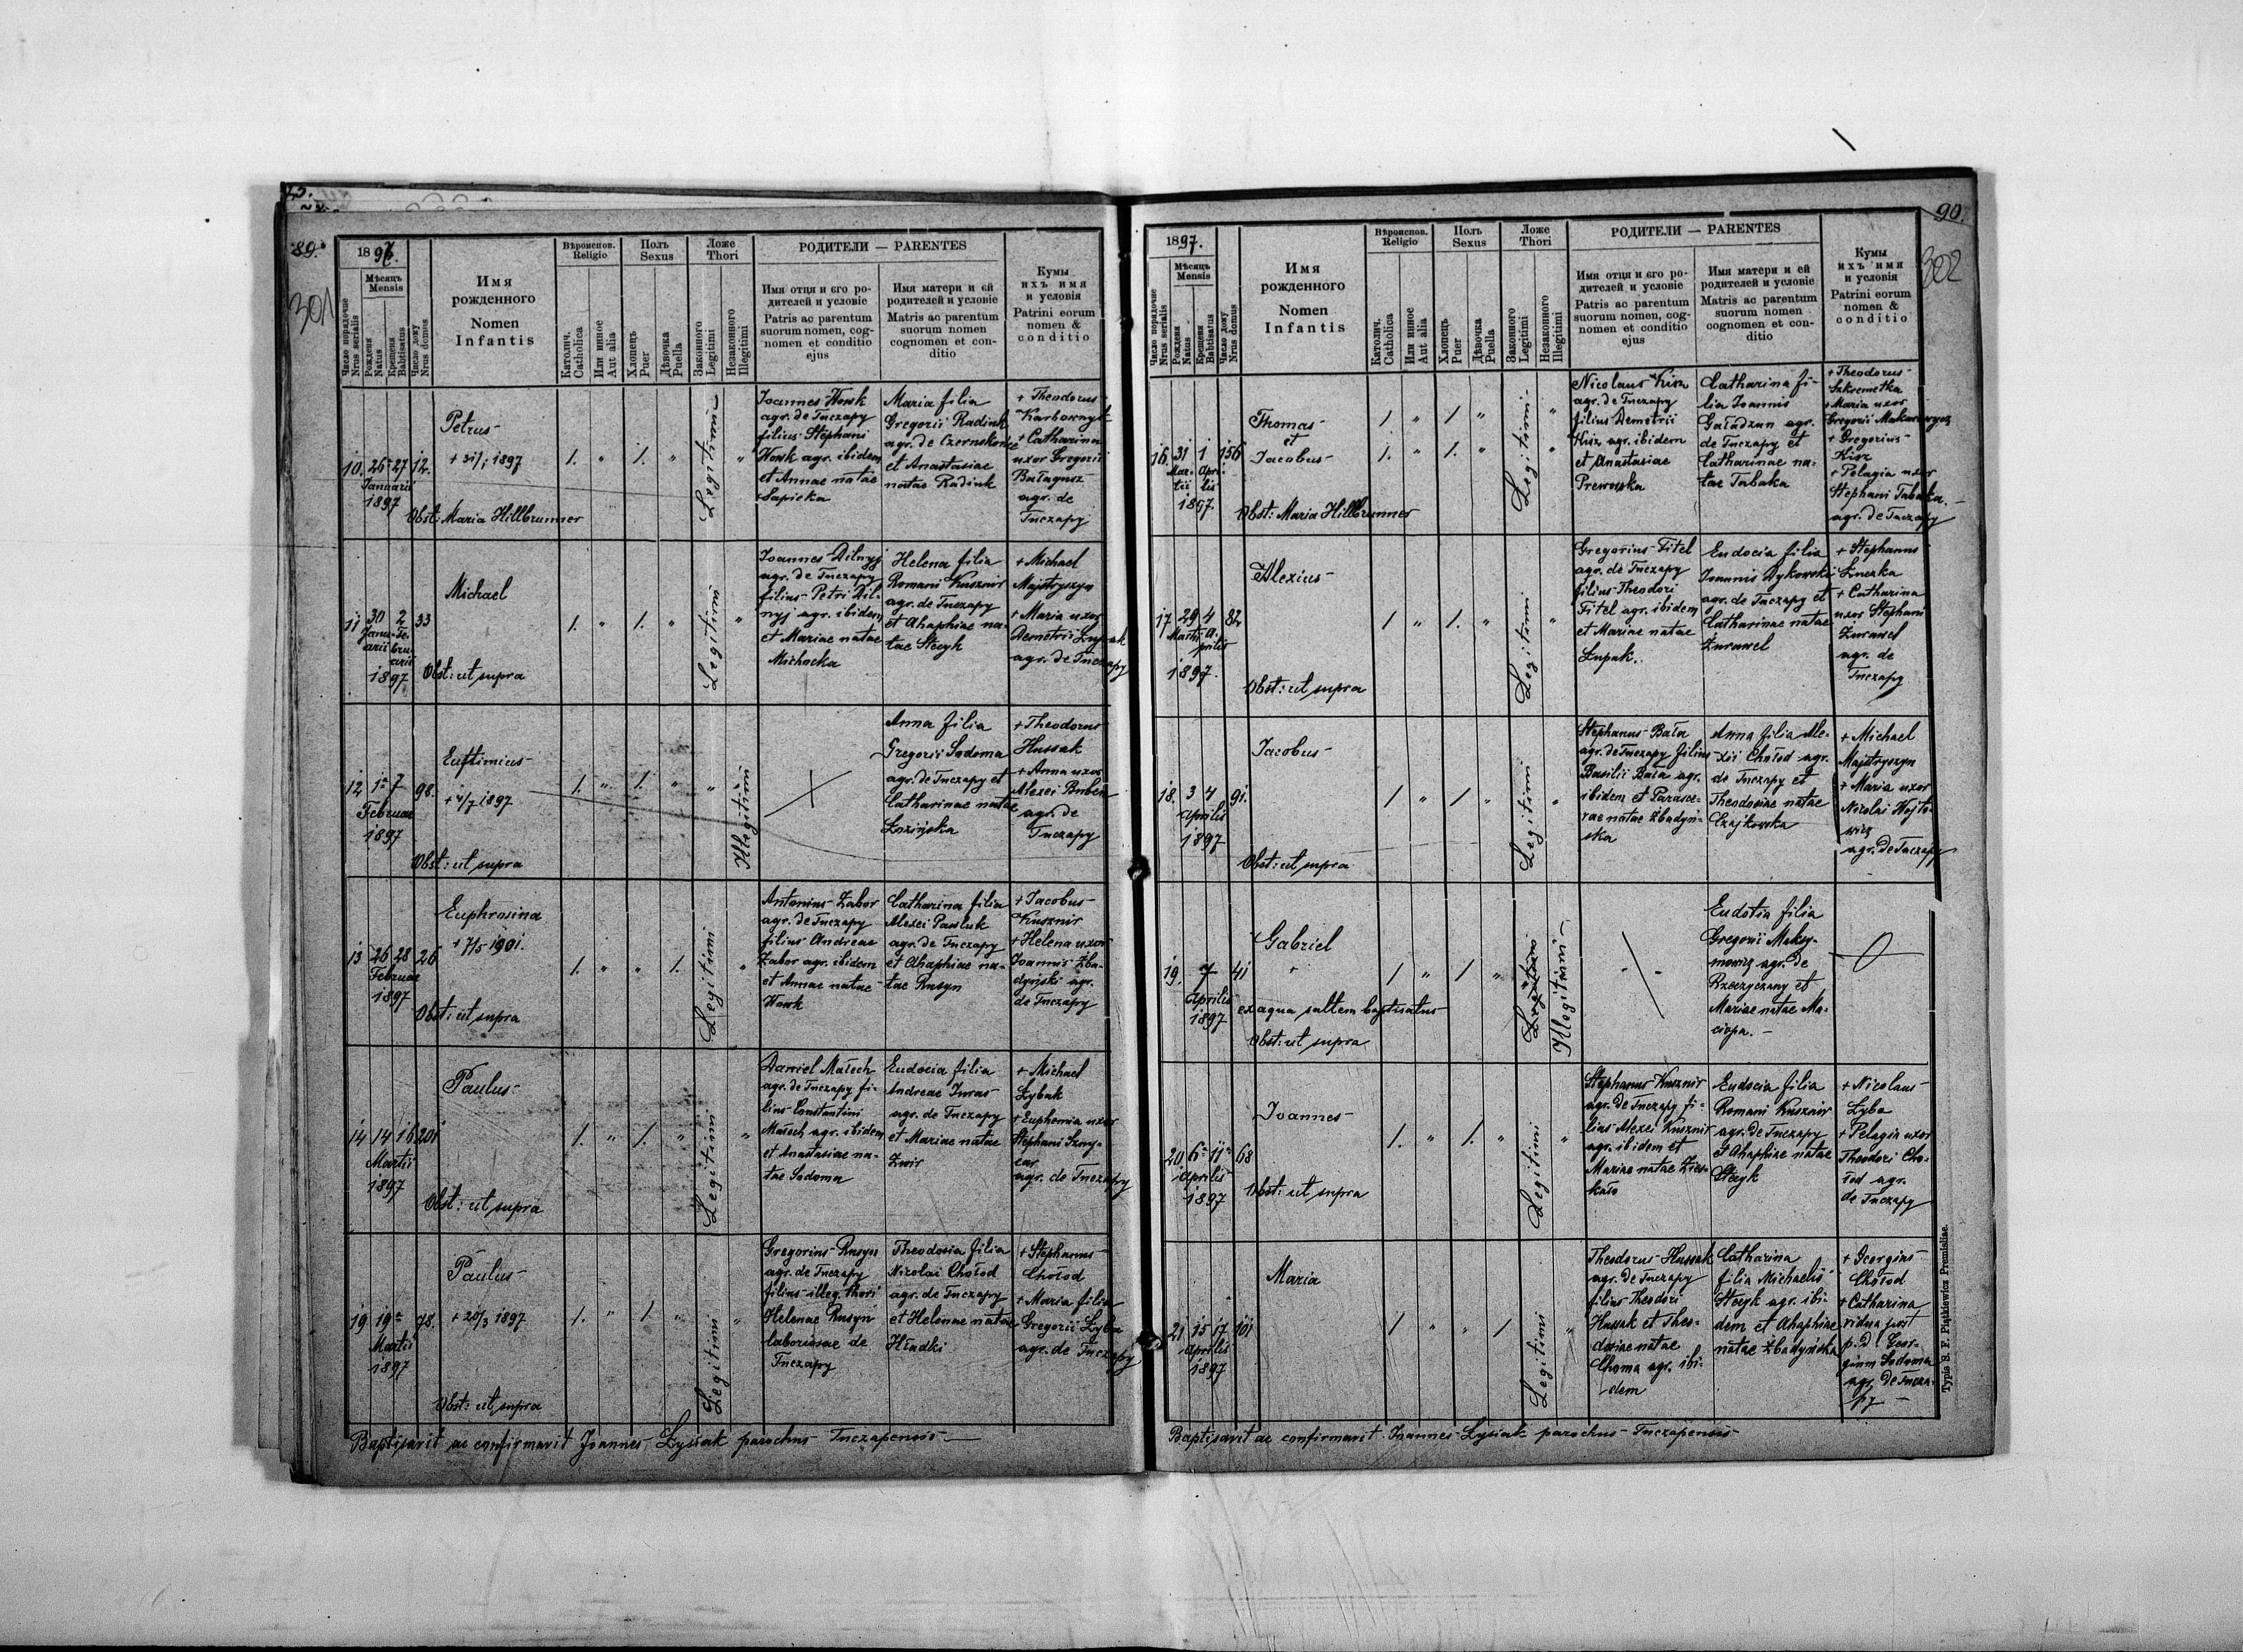 89.
301
1897.
Мѣсяцъ
Mensis
Число порядочне
Nrus serialis
Рожденя
Natus
Крещеня
Babtisatus
Число дому
Nrus domus
Имя
рожденного
Nomen
Infantis
Вѣроиспов.
Religio
Католич.
Catholica
Или инное
Aut alia
Полъ
Sexus
Хлопець
Puer
Дѣвочка
Puella
Ложе
Thori
Законного
Legitimi
Незаконного
Illegitimi
РОДИТЕЛИ — PARENTES
Имя отця и єго ро-
дителей и условіе
Patris ac parentum
suorum nomen, cog-
nomen et conditio
ejus
Имя матери и єй
родителей и условіе
Matris ac parentum
suorum nomen
cognomen et con-
ditio
Кумы
ихъ имя
и условія
Patrini eorum
nomen &
conditio
10. 26 27 12.
Januarii
1897
Petrus
+ 31/1 1897
Obst: Maria Hillbrunner
1. " 1. "
Legitimi "
Joannes Wowk
agr. de Tuczapy
filius Stephani
Wowk agr. ibidem
et Annae natae
Sapicka
Maria filia
Gregorii Radiuk
agr. de Czernokonce
et Anastasiae
natae Radiuk
+ Theodorus
Karbownyk
+ Catharina
uxor Gregorii
Bałagusz
agr. de
Tuczapy
11 30 2 33
Janu- Fe-
arii bru-
arii
1897
Michael
Obst: ut supra
1. " 1. "
Legitimi "
Joannes Dilnyj
agr. de Tuczapy
filius Petri Dil-
nyj agr. ibidem
et Mariae natae
Michocka
Helena filia
Romani Kusznir
agr. de Tuczapy
et Ahaphiae na-
tae Stecyk
+ Michael
Majstryszyn
+ Maria uxor
Demetrii Łupak
agr. de Tuczapy
12 1 7 98.
Februar
1897
Euftimius
+ 4/7 1897
Obst: ut supra
1. " 1. "
" Illegitimi
Anna filia
Gregorii Sodoma
agr. de Tuczapy et
Catharinae natae
Łozińska
+ Theodorus
Hussak
+ Anna uxor
Alexei Buben
agr. de
Tuczapy
13 26 28 26
Februar
1897
Euphrosina
+ 7/5 1901.
Obst: ut supra
1. " " 1.
Legitimi "
Antonius Zabor
agr. de Tuczapy
filius Andreae
Zabor agr. ibidem
et Annae natae
Wowk
Catharina filia
Alexei Pawluk
agr. de Tuczapy
et Ahaphiae na-
tae Rusyn
+ Jacobus
Kusznir
+ Helena uxor
Joannis Żba-
dyński agr.
de Tuczapy
14 14 16 201
Martii
1897
Paulus
Obst: ut supra
1. " 1. "
Legitimi "
Daniel Małech
agr. de Tuczapy fi-
lius Constantini
Małech agr. ibidem
et Anastasiae na-
tae Sodoma
Eudocia filia
Andreae Juras
agr. de Tuczapy
et Mariae natae
Zwir
+ Michael
Łybak
+ Euphemia uxor
Stephani
agr. de Tuczapy
19 19 78.
Martii
1897
Paulus
+ 20/3 1897
Obst: ut supra
1. " 1 "
Legitimi "
Gregorius Rusyn
agr. de Tuczapy
filius illeg. thori
Helenae Rusyn
laboriosae de
Tuczapy
Theodosia filia
Nicolai Chołod
agr. de Tuczapy
et Helenae natae
Hładki
+ Stephanus
Chołod
+ Maria filia
Gregorii Łyba
agr. de Tuczapy
Baptisavit ac confirmavit Joannes Łysiak parochus Tuczapensis
90.
302
1897.
Мѣсяцъ
Mensis
Число порядочне
Nrus serialis
Рожденя
Natus
Крещеня
Babtisatus
Число дому
Nrus domus
Имя
рожденного
Nomen
Infantis
Вѣроиспов.
Religio
Католич.
Catholica
Или инное
Aut alia
Полъ
Sexus
Хлопець
Puer
Дѣвочка
Puella
Ложе
Thori
Законного
Legitimi
Незаконного
Illegitimi
РОДИТЕЛИ — PARENTES
Имя отця и єго ро-
дителей и условіе
Patris ac parentum
suorum nomen, cog-
nomen et conditio
ejus
Имя матери и єй
родителей и условіе
Matris ac parentum
suorum nomen
cognomen et con-
ditio
Кумы
ихъ имя
и условія
Patrini eorum
nomen &
conditio
16. 31 1 156
Mar- Apri-
tii lis
1897
Thomas
et
Jacobus
Obst: Maria Hillbrunner
1. " 1 "
1. " 1. "
Legitimi "
Nicolaus Kisz
agr. de Tuczapy
filius Demetrii
Kisz agr. ibidem
et Anastasiae
Prewoska
Catharina fi-
lia Joannis
Gaładzun agr.
de Tuczapy et
Catharinae na-
tae Tabaka
+ Theodorus
Szkremetka
+ Maria uxor
Gregorii Makarowycz
+ Gregorius
Kisz
+ Pelagia uxor
Stephani Tabaka.
agr. de Tuczapy
17 29 4 82
Martii A-
prilis
1897.
Alexius
Obst: ut supra
1 " 1. "
Legitimi "
Gregorius Fitel
agr. de Tuczapy
filius Theodori
Fitel agr. ibidem
et Mariae natae
Łupak.
Eudocia filia
Joannis Dykowski
agr. de Tuczapy et
Catharinae natae
Żurawel
+ Stephanus
Łuczka
+ Catharina
uxor Stephani
Żurawel
agr. de
Tuczapy
18. 3 4 91.
Aprilis
1897
Jacobus
Obst: ut supra
1 " 1 "
Legitimi "
Stephanus Bała
agr. de Tuczapy filius
Basilii Bała agr.
ibidem et Parasce-
vae natae Żbadyń-
ska
Anna filia Ale-
xii Chołod agr.
de Tuczapy et
Theodosiae natae
Czajkowska
+ Michael
Majstryszyn
+ Maria uxor
Nicolai Wojto-
wicz
agr. de Tuczapy
19. 7 41
Aprilis
1897
Gabriel
ex aqua saltem baptisatus
Obst: ut supra
1 " 1 "
Legitimi Illegitimi
Eudotia filia
Gregorii Maksy-
mowicz agr. de
Rzeczyczany et
Mariae natae Ma-
ciopa.
20 6 11 68
Aprilis
1897
Joannes
Obst: ut supra
1. " 1. "
Legitimi "
Stephanus Kusznir
agr. de Tuczapy fi-
lius Alexei Kusznir
agr. ibidem et
Mariae natae
Eudocia filia
Romani Kusznir
agr. de Tuczapy
et Ahaphiae natae
Stecyk
+ Nicolaus
Łyba
+ Pelagia uxor
Theodori Cho-
łod agr.
de Tuczapy
21 15 17 101
Aprilis
1897
Maria
1 " " 1
Legitimi "
Theodorus Hussak
agr. de Tuczapy
filius Theodori
Hussak et Theo-
dosiae natae
Choma agr. ibi-
dem
Catharina
filia Michaelis
Stecyk agr. ibi-
dem et Ahaphiae
natae Żbadyńska
+ Georgius
Chołod
+ Catharina
vidua post
p. d. Geor-
gium Sodoma
agr. de Tucza-
py
Baptisavit ac confirmavit Joannes Łysiak parochus Tuczapensis
Typis S. F. Piątkiewicz Premisliae.